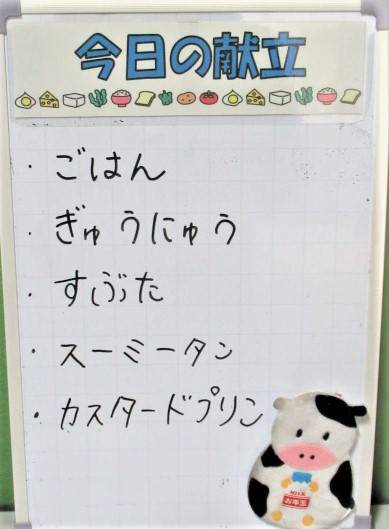 今日の献立
・ごはん
・ぎゅうにゅう
・すぶた
・スーミータン
・カスタードプリン
MILK
お年玉